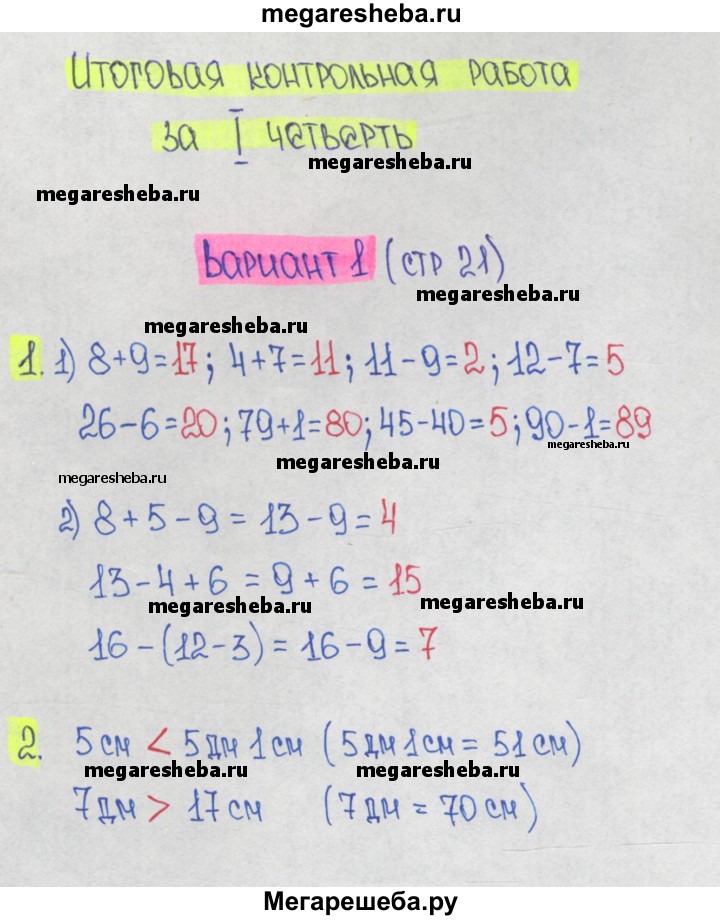 megaresheba.ru
Итоговая контрольная работа
за I четверть
megaresheba.ru
megaresheba.ru
Вариант 1 (стр 21)
megaresheba.ru
megaresheba.ru
1. 1) 8+9=17; 4+7=11; 11-9=2; 12-7=5
26-6=20; 79+1=80; 45-40=5; 90-1=89
megaresheba.ru
megaresheba.ru
megaresheba.ru
2) 8+5-9=13-9=4
13-4+6=9+6=15
megaresheba.ru
megaresheba.ru
16-(12-3)=16-9=7
2. 5 см < 5 дм 1 см (5 дм 1 см = 51 см)
megaresheba.ru
megaresheba.ru
7 дм > 17 см (7 дм = 70 см)
Мегарешеба.ру